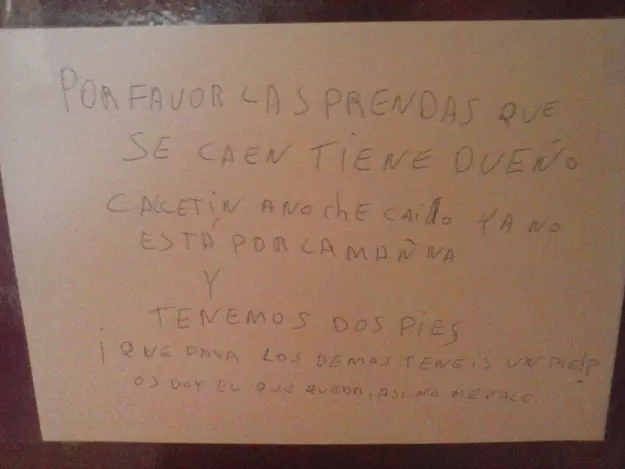 POR FAVOR LAS PRENDAS QUE
SE CAEN TIENE DUEÑO
CALCETIN ANOchE CAido YA NO
ESTÁ POR LA MAÑNA
Y
TENEMOS DOS PIES
¡QUE PASA LOS DEMAS TENEIS UN PIE!?
OS DOY EL QUE QUEDA, ASI NO ME VALE.